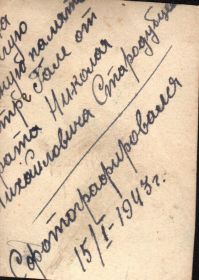 на
ную память
тре Гале от
рата Николая
ихайловича Стародубцева
Сфотографировался
15/I-1943г.